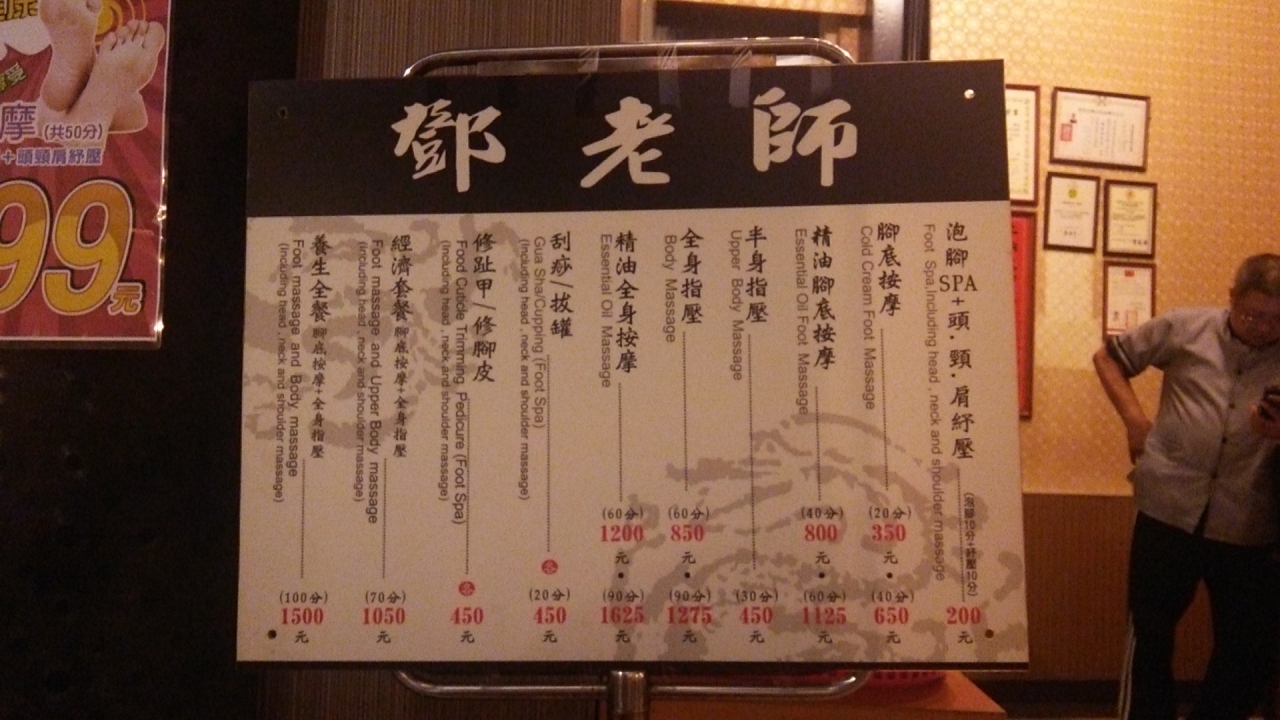 鄧老師
泡腳SPA+頭.頸.肩紓壓
(泡腳10分+紓壓10分)
200元
Foot Spa,Including head , neck and shoulder massage
腳底按摩
(20分)
350元
•
(40分)
650元
Cold Cream Foot Massage
精油腳底按摩
(40分)
800元
•
(60分)
1125元
Essential Oil Foot Massage
半身指壓
(30分)
450元
Upper Body Massage
全身指壓
(60分)
850元
•
(90分)
1275元
Body Massage
精油全身按摩
(60分)
1200元
•
(90分)
1625元
Essential Oil Massage
刮痧/拔罐
(20分)
450元
Gua Sha/Cupping (Foot Spa)
(Including head , neck and shoulder massage)
修趾甲/修腳皮
450元
Food Cuticle Trimming Pedicure (Foot Spa)
(Including head , neck and shoulder massage)
經濟套餐 腳底按摩+半身指壓
(70分)
1050元
Foot massage and Upper Body massage
(Including head , neck and shoulder massage)
養生全餐 腳底按摩+全身指壓
(100分)
1500元
Foot massage and Body massage
(Including head , neck and shoulder massage)
摩(共50分)
+頭頸肩紓壓
99元